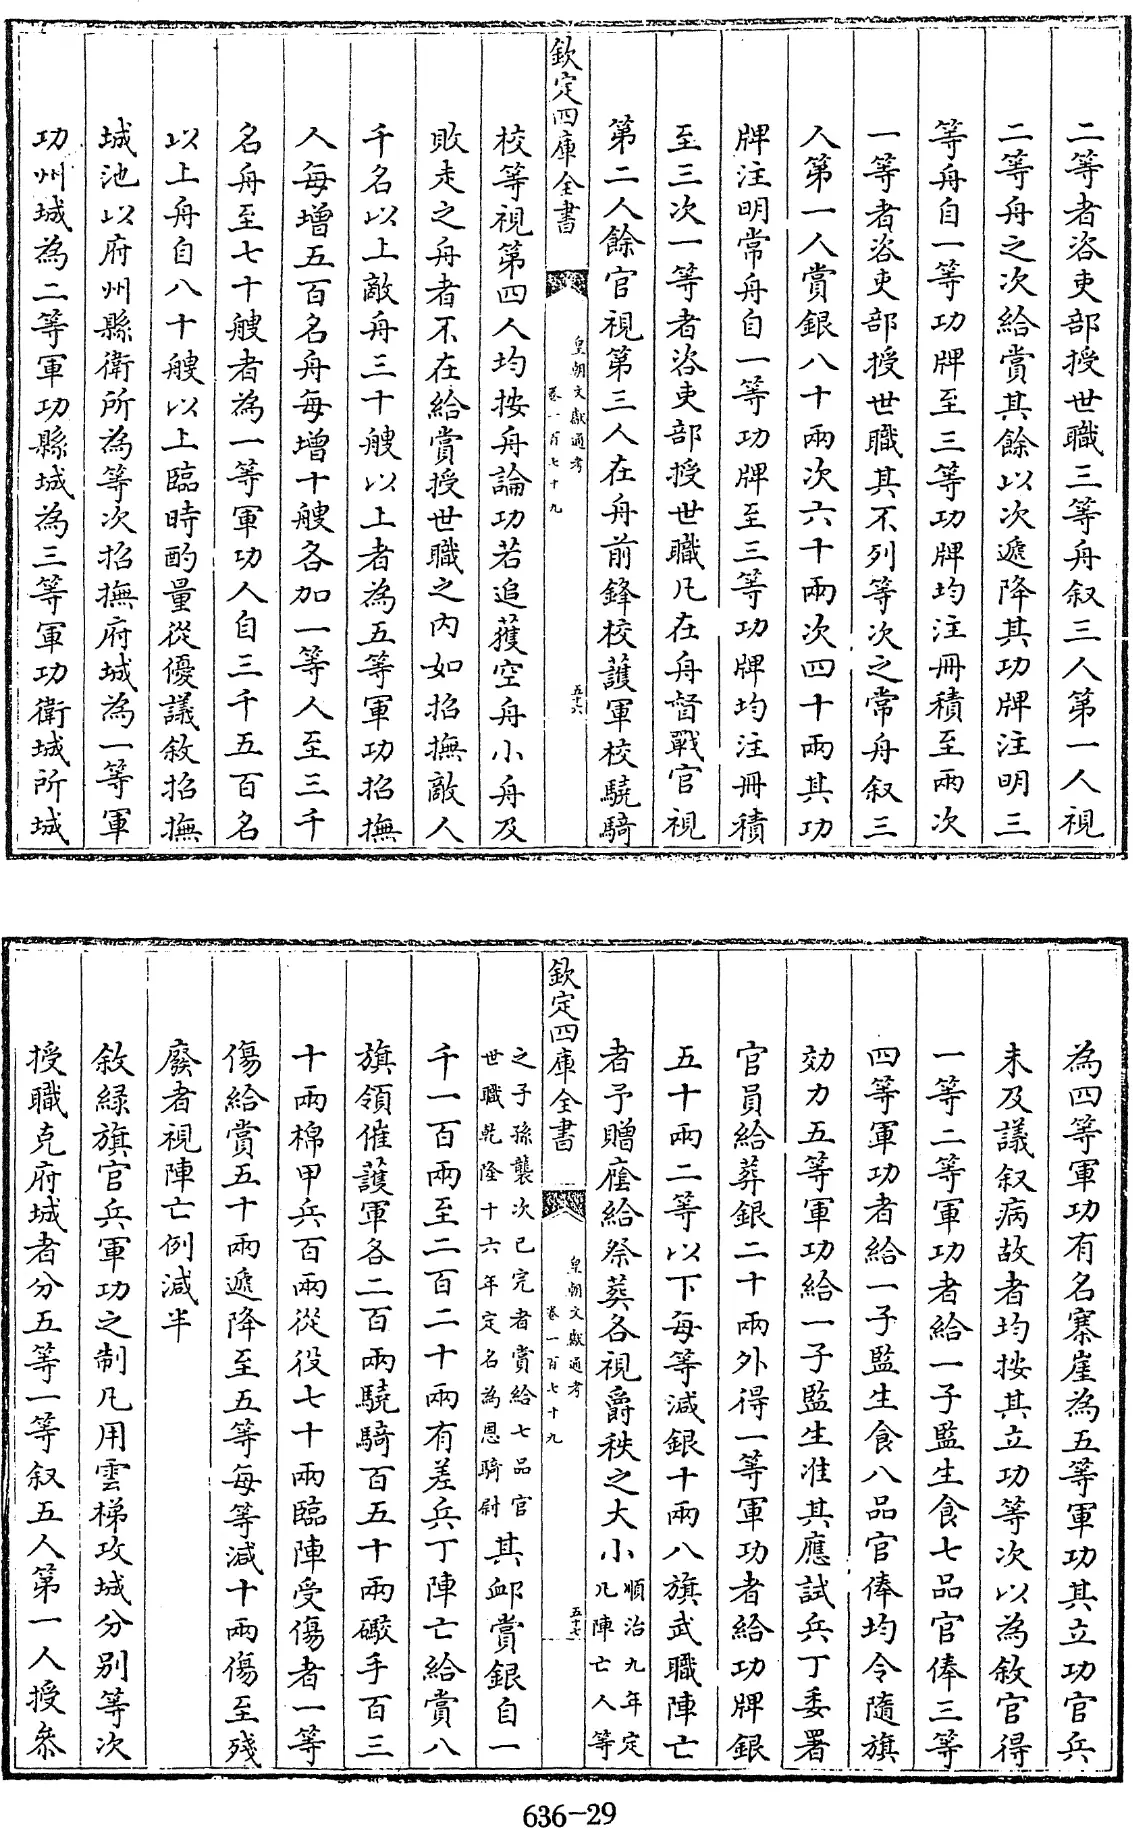 二等者咨吏部授世職三等舟叙三人第一人視
二等舟之次給賞其餘以次遞降其功牌注明三
等舟自一等功牌至三等功牌均注冊積至兩次
一等者咨吏部授世職其不列等次之常舟叙三
人第一人賞銀八十兩次六十兩次四十兩其功
牌注明常舟自一等功牌至三等功牌均注冊積
至三次一等者咨吏部授世職凡在舟督戰官視
第二人餘官視第三人在舟前鋒校護軍校驍騎
欽定四庫全書
皇朝文獻通考
卷一百七十九
五十六
校等視第四人均按舟論功若追獲空舟小舟及
敗走之舟者不在給賞授世職之內如招撫敵人
千名以上敵舟三十艘以上者為五等軍功招撫
人每增五百名舟每增十艘各加一等人至三千
名舟至七十艘者為一等軍功人自三千五百名
以上舟自八十艘以上臨時酌量從優議敘招撫
城池以府州縣衛所為等次招撫府城為一等軍
功州城為二等軍功縣城為三等軍功衛城所城
為四等軍功有名寨崖為五等軍功其立功官兵
未及議叙病故者均按其立功等次以為敘官得
一等二等軍功者給一子監生食七品官俸三等
四等軍功者給一子監生食八品官俸均令隨旗
効力五等軍功給一子監生准其應試兵丁委署
官員給葬銀二十兩外得一等軍功者給功牌銀
五十兩二等以下每等減銀十兩八旗武職陣亡
者予贈廕給祭葬各視爵秩之大小順治九年定凡陣亡人等
欽定四庫全書
皇朝文獻通考
卷一百七十九
五十七
之子孫襲次已完者賞給七品官世職乾隆十六年定名為恩騎尉其卹賞銀自一
千一百兩至二百二十兩有差兵丁陣亡給賞八
旗領催護軍各二百兩驍騎百五十兩礮手百三
十兩棉甲兵百兩從役七十兩臨陣受傷者一等
傷給賞五十兩遞降至五等每等減十兩傷至殘
廢者視陣亡例減半
敘綠旗官兵軍功之制凡用雲梯攻城分別等次
授職克府城者分五等一等叙五人第一人授叅
636-29